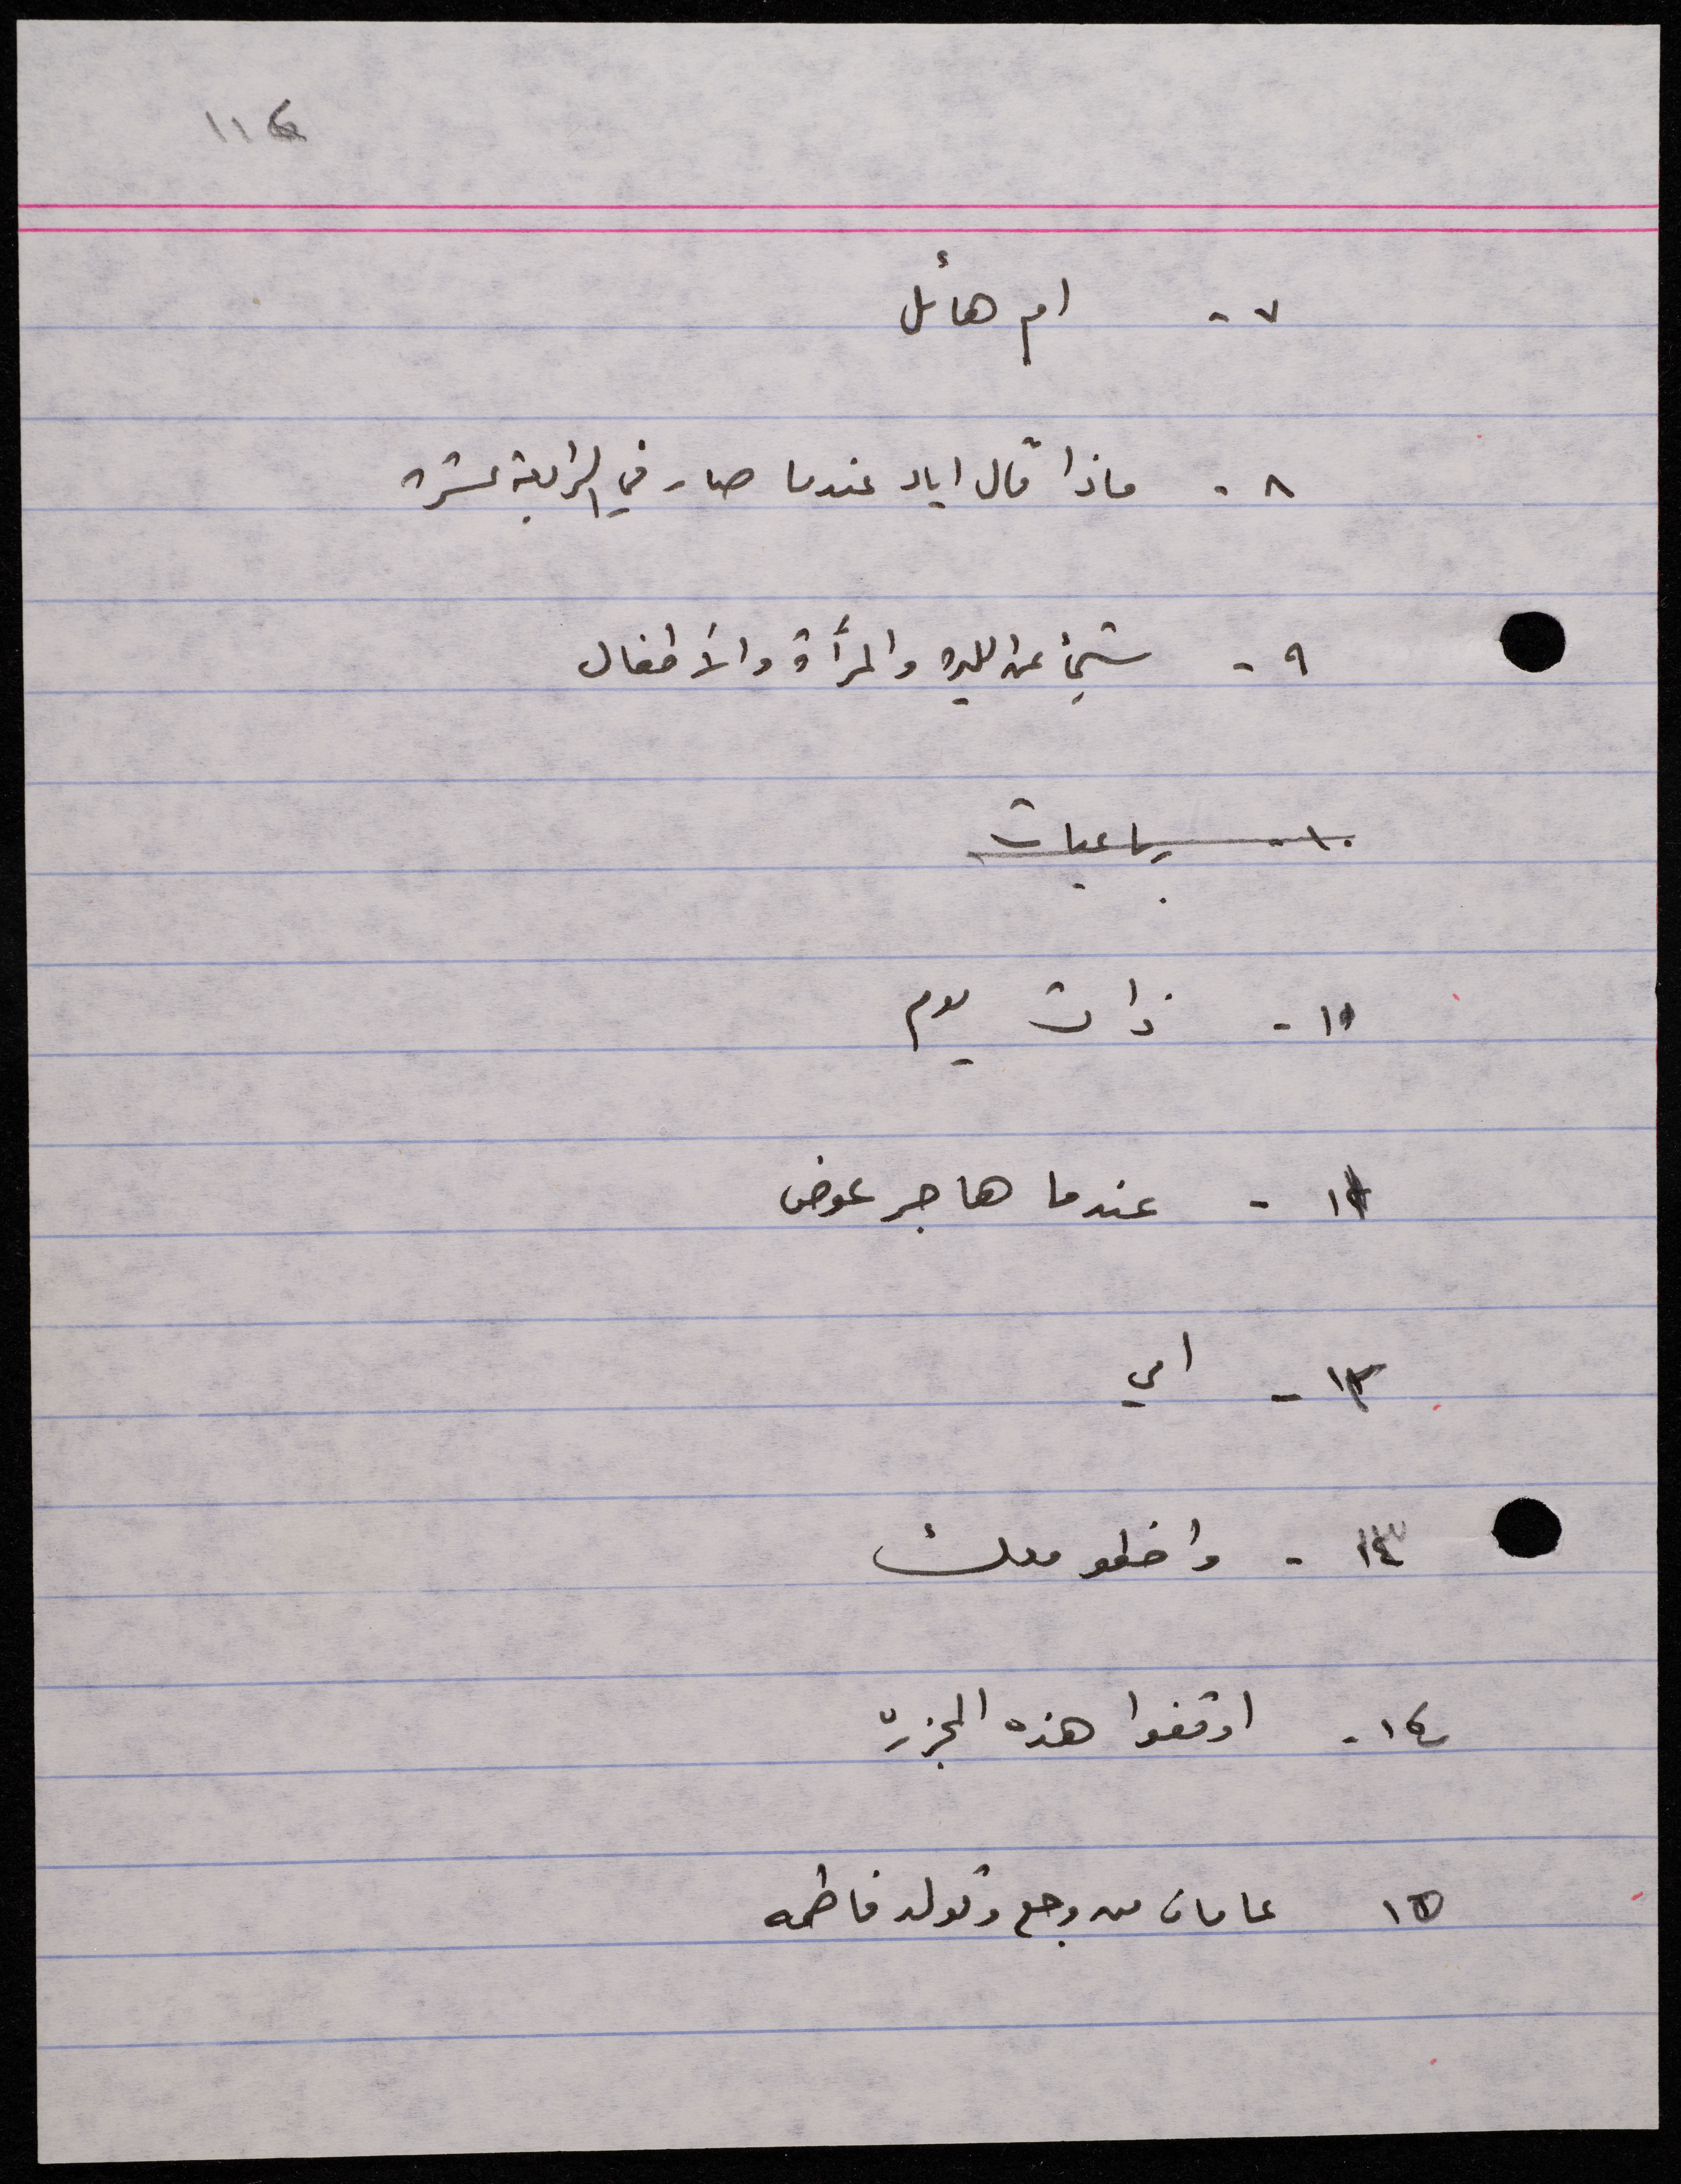 ١١٤
٧ - ام هائل
٨ - ماذا قال اياد عندما صار في الرابعة عشره
٩ - شئ عن والمرأة والأطفال
١٠ - رباعيات
١٠ - ذات يوم
١١ - عندما هاجر عوض
١٢ - امي
١٣ - واخطو
١٤ - اوقفوا هذه المجزره
١٥ عامان من وجع وتولد فاطمه